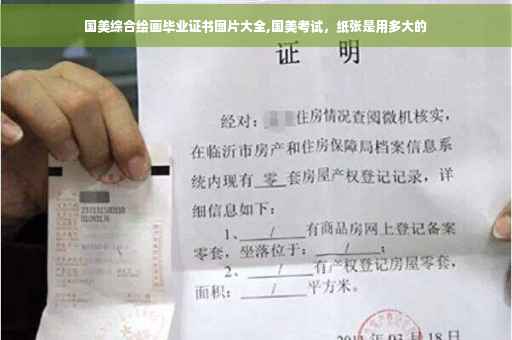 国美综合绘画毕业证书图片大全,国美考试，纸张是用多大的
证 明
经对：住房情况查阅微机核实，
在临沂市房产和住房保障局档案信息系
统内现有 零 套房屋产权登记记录，详
细信息如下：
1、 / 有商品房网上登记备案
零套，坐落位于： / ；
2、 / 有产权登记房屋零套，
面积： / 平方米。
03月18日